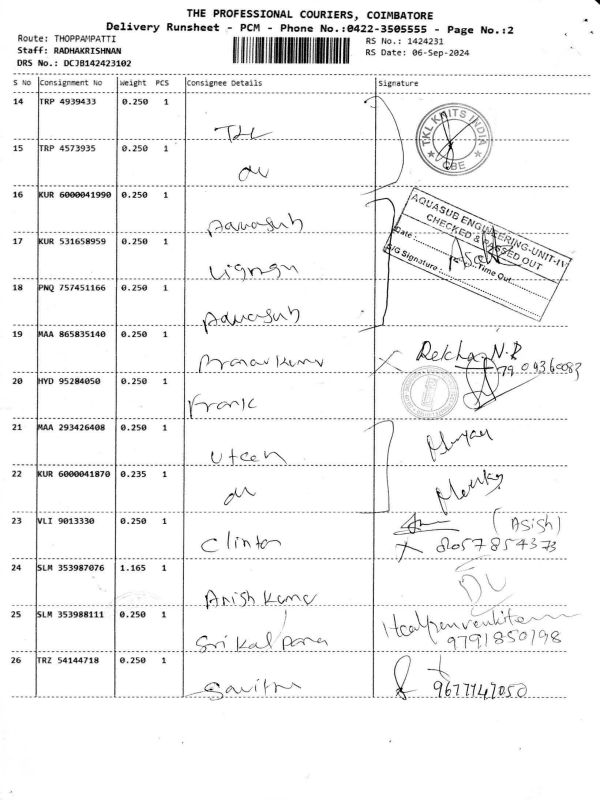 THE PROFESSIONAL COURIERS, COIMBATORE
Delivery Runsheet - PCM - Phone No.:0422-3505555 - Page No.:2
Route: THOPPAMPATTI
RS No.: 1424231
Staff: RADHAKRISHNAN
RS Date: 06-Sep-2024
DRS No.: DCJB142423102
S No Consignment No Weight PCS Consignee Details Signature
14 TRP 4939433 0.250 1
TKL
TKL KNITS INDIA
CBE
15 TRP 4573935 0.250 1
du
16 KUR 6000041990 0.250 1
Aquasub
AQUASUB ENGINEERING-UNIT-IV
CHECKED & PASSED OUT
Date
S/G Signature Time Out
17 KUR 531658959 0.250 1
18 PNQ 757451166 0.250 1
Aquasub
19 MAA 865835140 0.250 1
Pranav Kumar
Rekha N.R
20 HYD 95284050 0.250 1
Frank
21 MAA 293426408 0.250 1
22 KUR 6000041870 0.235 1
du
23 VLI 9013330 0.250 1
Clinton
(Asish)
8057854373
24 SLM 353987076 1.165 1
Anish Kumar
DU
25 SLM 353988111 0.250 1
Sri Kalpana
9791850198
26 TRZ 54144718 0.250 1
Savithri
9677747050